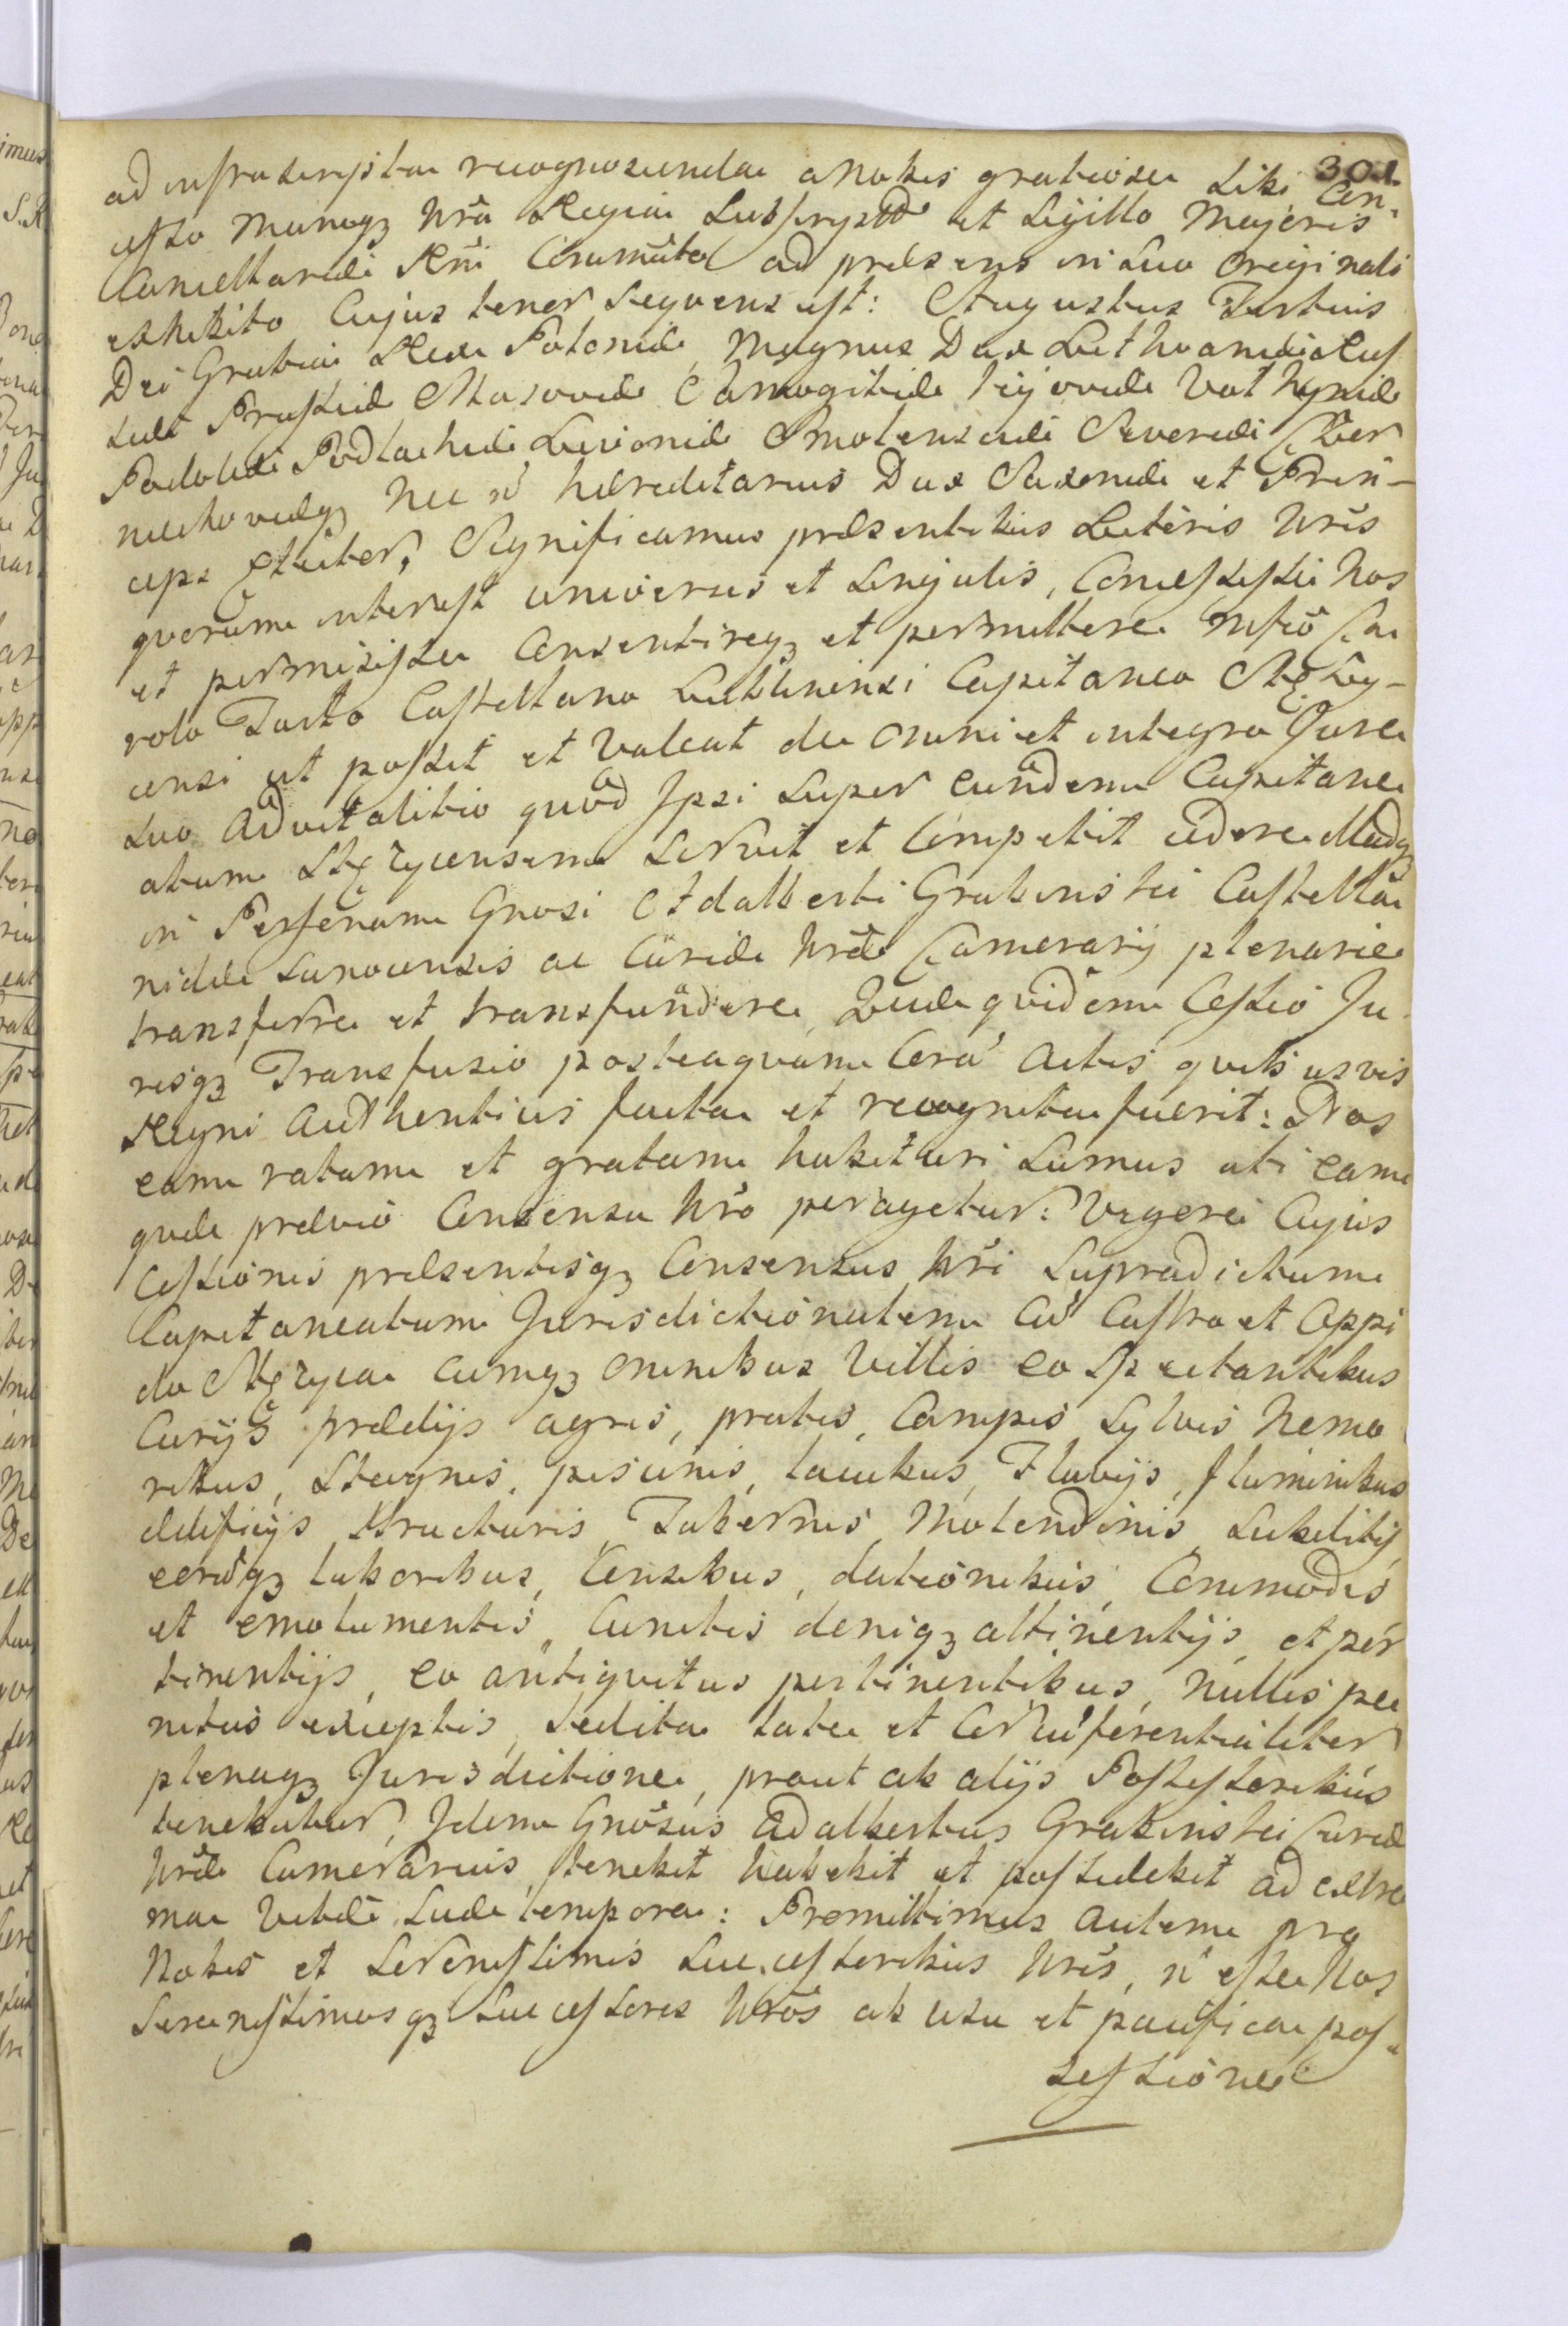 301.
ad infrascripta recognoscenda a Nobis gratiose sibi Con-
cesso Manuq3 Nrã Regia Subscripto et Sigillo Majoris
Cancellariæ Rñi Comunito ad præsens in Suo Originali
exhibito Cujus tenor Seqvens est: Augustus Tertius
Dei Gratia Rex Poloniæ, Magnus Dux Lithvaniæ Rus
siæ Prussiæ Masoviæ Samogitiæ Kijoviæ Volhyniæ
Podoliæ Podlachiæ Livoniæ Smolensciæ Severiæ Czer
niechoviæq3 Nec ñ hæreditarius Dux Saxoniæ et Prin-
ceps Elector, Significamus præsentibus Literis Nris
qvorum interest universis et Singulis, Concessisse Nos
et permisisse Consentireq3 et permittere Mfco Ca
rolo Tarło Castellano Lublinensi Capitaneo Stęży-
censi ut possit et Valeat de Omni et integro Jure
Suo Advitalitio qvod Ipsi Super eundem Capitane
atum Stęzycensem Servit et Competit cedere illudq3
in Personam Gnosi Adalberti Grabinski Castella
nidæ Sanocensis ac Curiæ Nræ Camerarij plenarie
transferre et transfundere, Quæ qvidem Cessio Ju
risq3 Transfusio posteaqvam Cora Actis qvibusvis
Regni Authenticis facta et recognita fuerit: Nos
eam ratam et gratam habituri Sumus uti eam
qvæ prævio Consensu Nro peragetur: Vigore Cujus
Cessionis præsentisq3 Consensus Nri Supradictum
Capitaneatum Jurisdictionalem Cũ Castro et Oppi
do Stęzyca cumq3 omnibus Villis eo Spectantibus
Curijs prædijs agris, pratis, Campis Sylvis Nemo
ribus, Stagnis, piscinis, lacubus, Fluvijs, fluminibus
ædificijs Structuris Tabernis Molendinis Subditis
eorũq3 laboribus, Censibus, dationibus, Commodis
et emolumentis, Cunctis deniq3 attinentijs et per
tinentijs, eo antiqvitus pertinentibus, Nullis pe
nitus exceptis, Sed ita late et Circũferentialiter
plenaq3 Jurisdictione, prout ab alijs Possessoribus
tenebatur, Idem Gnosus Adalbertus Grabinski Curiæ
Nræ Camerarius, tenebit habebit et possidebit ad extre
ma Vitæ Suæ tempora: Promittimus autem pro
Nobis et Serenissimis Successoribus Nris, ñ esse Nos
Serenissimosq3 Successores Nros ab usu et pacifica pos-
sessione